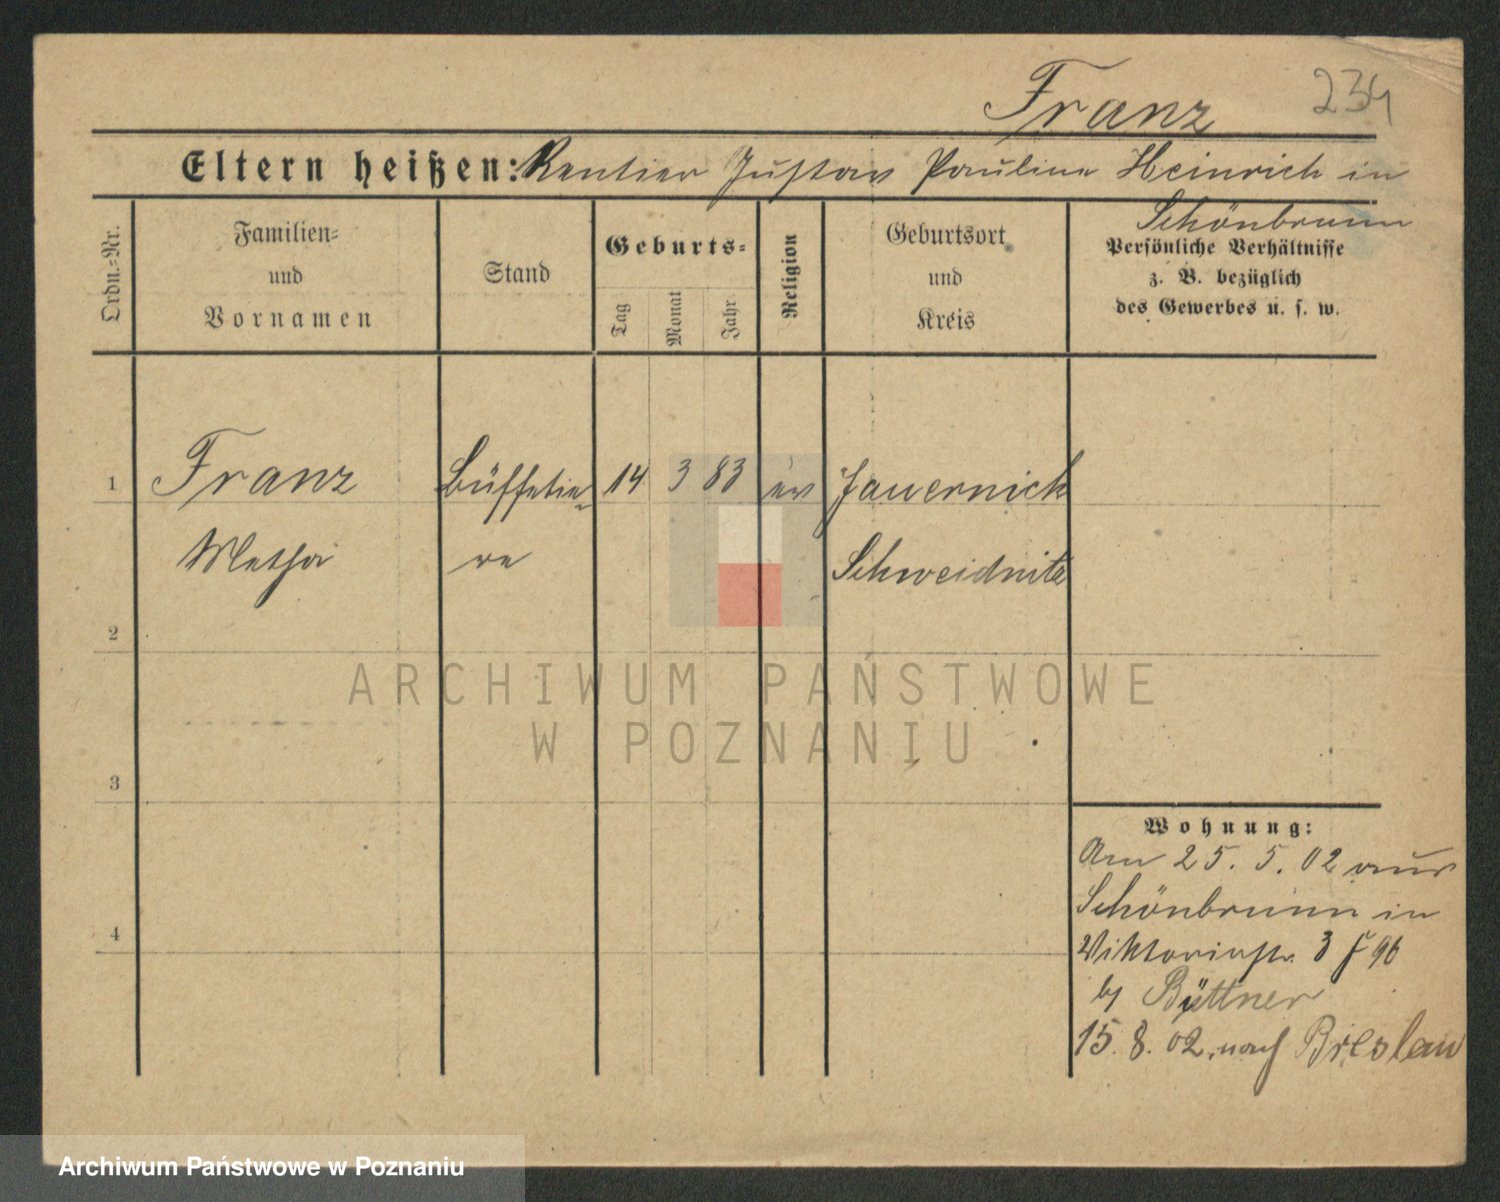 Franz 234
Eltern heißen: Rentier Gustav Pauline Heinrich in
Schönbrunn
Ordn.-Nr.
Familien-
und
Vornamen
Stand
Geburts-
Tag
Monat
Jahr
Religion
Geburtsort
und
Kreis
Persönliche Verhältnisse
z. B. bezüglich
des Gewerbes u. s. w.
1 Franz Büffetie- 14 3 83 ev Jauernick
Metha re Schweidnitz
2
ARCHIWUM PAŃSTWOWE
W POZNANIU
3
Wohnung:
Am 25. 5. 02 aus
Schönbrunn in
4
Viktoriastr. 3 F 96
by Büttner
15. 8. 02. nach Breslau
Archiwum Państwowe w Poznaniu